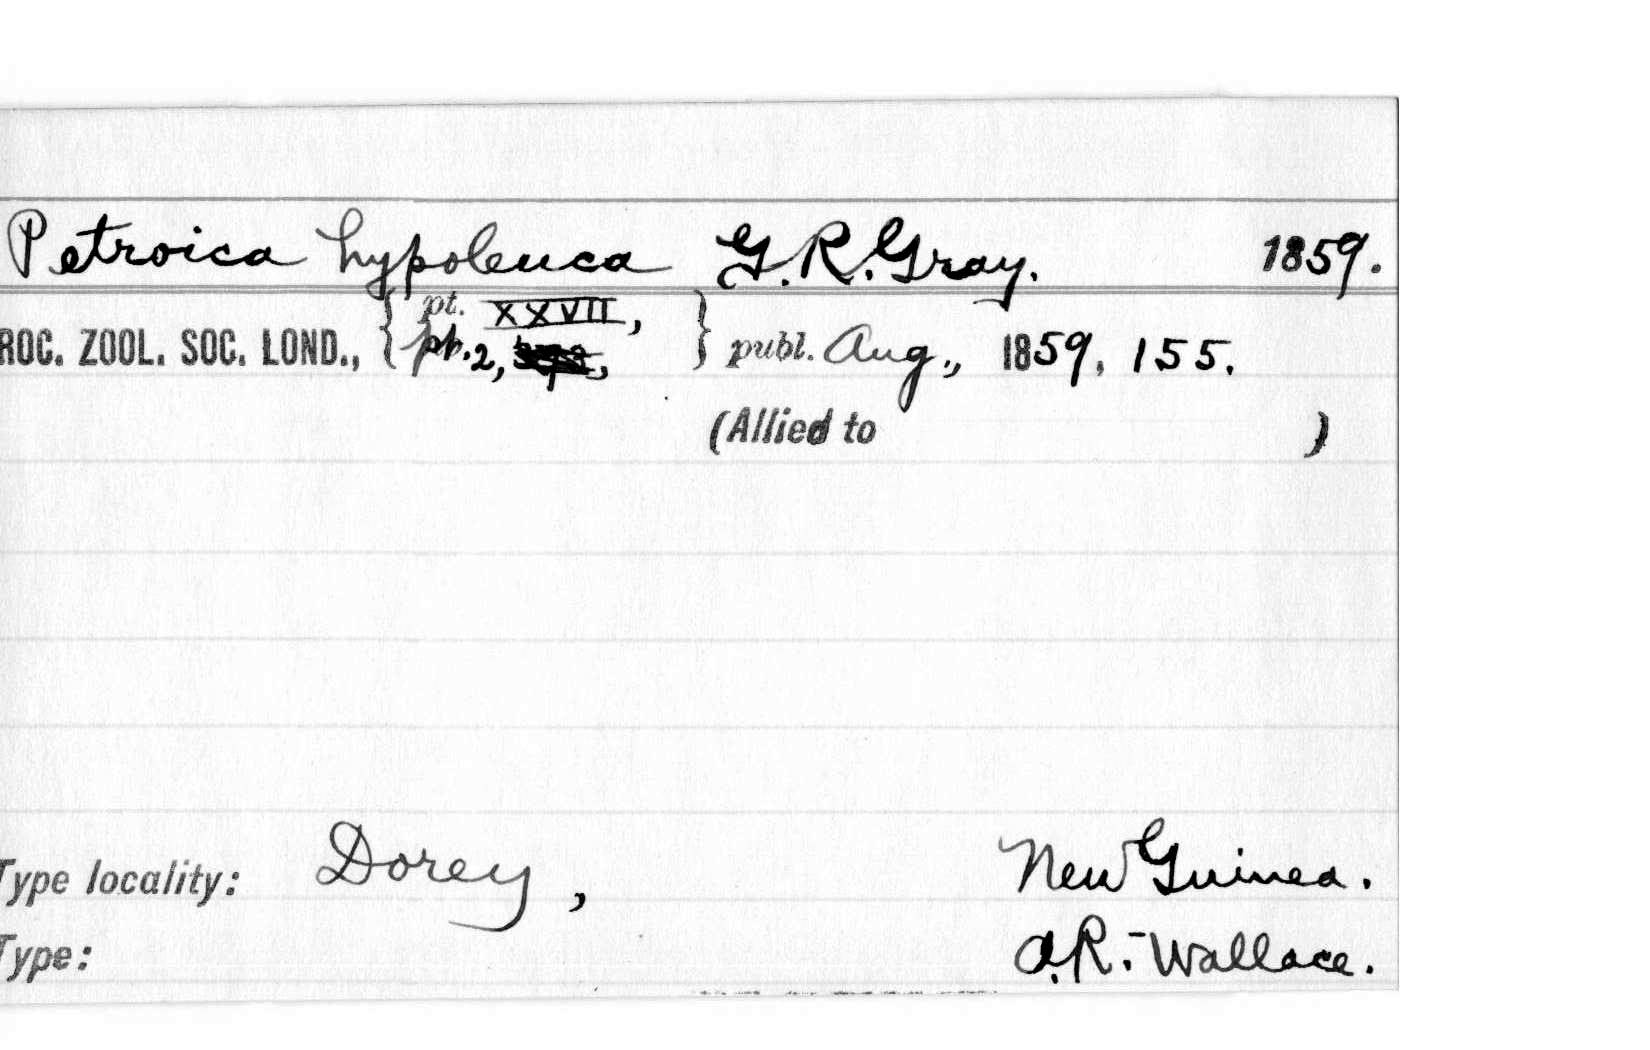 Petroica hypoleuca G.R.Gray. 1859.
ROC. ZOOL. SOC. LOND., { pt. XXVII, pt. 2, } publ. Aug., 1859, 155.
(Allied to )
Type locality: Dorey, New Guinea.
Type: A.R. Wallace.